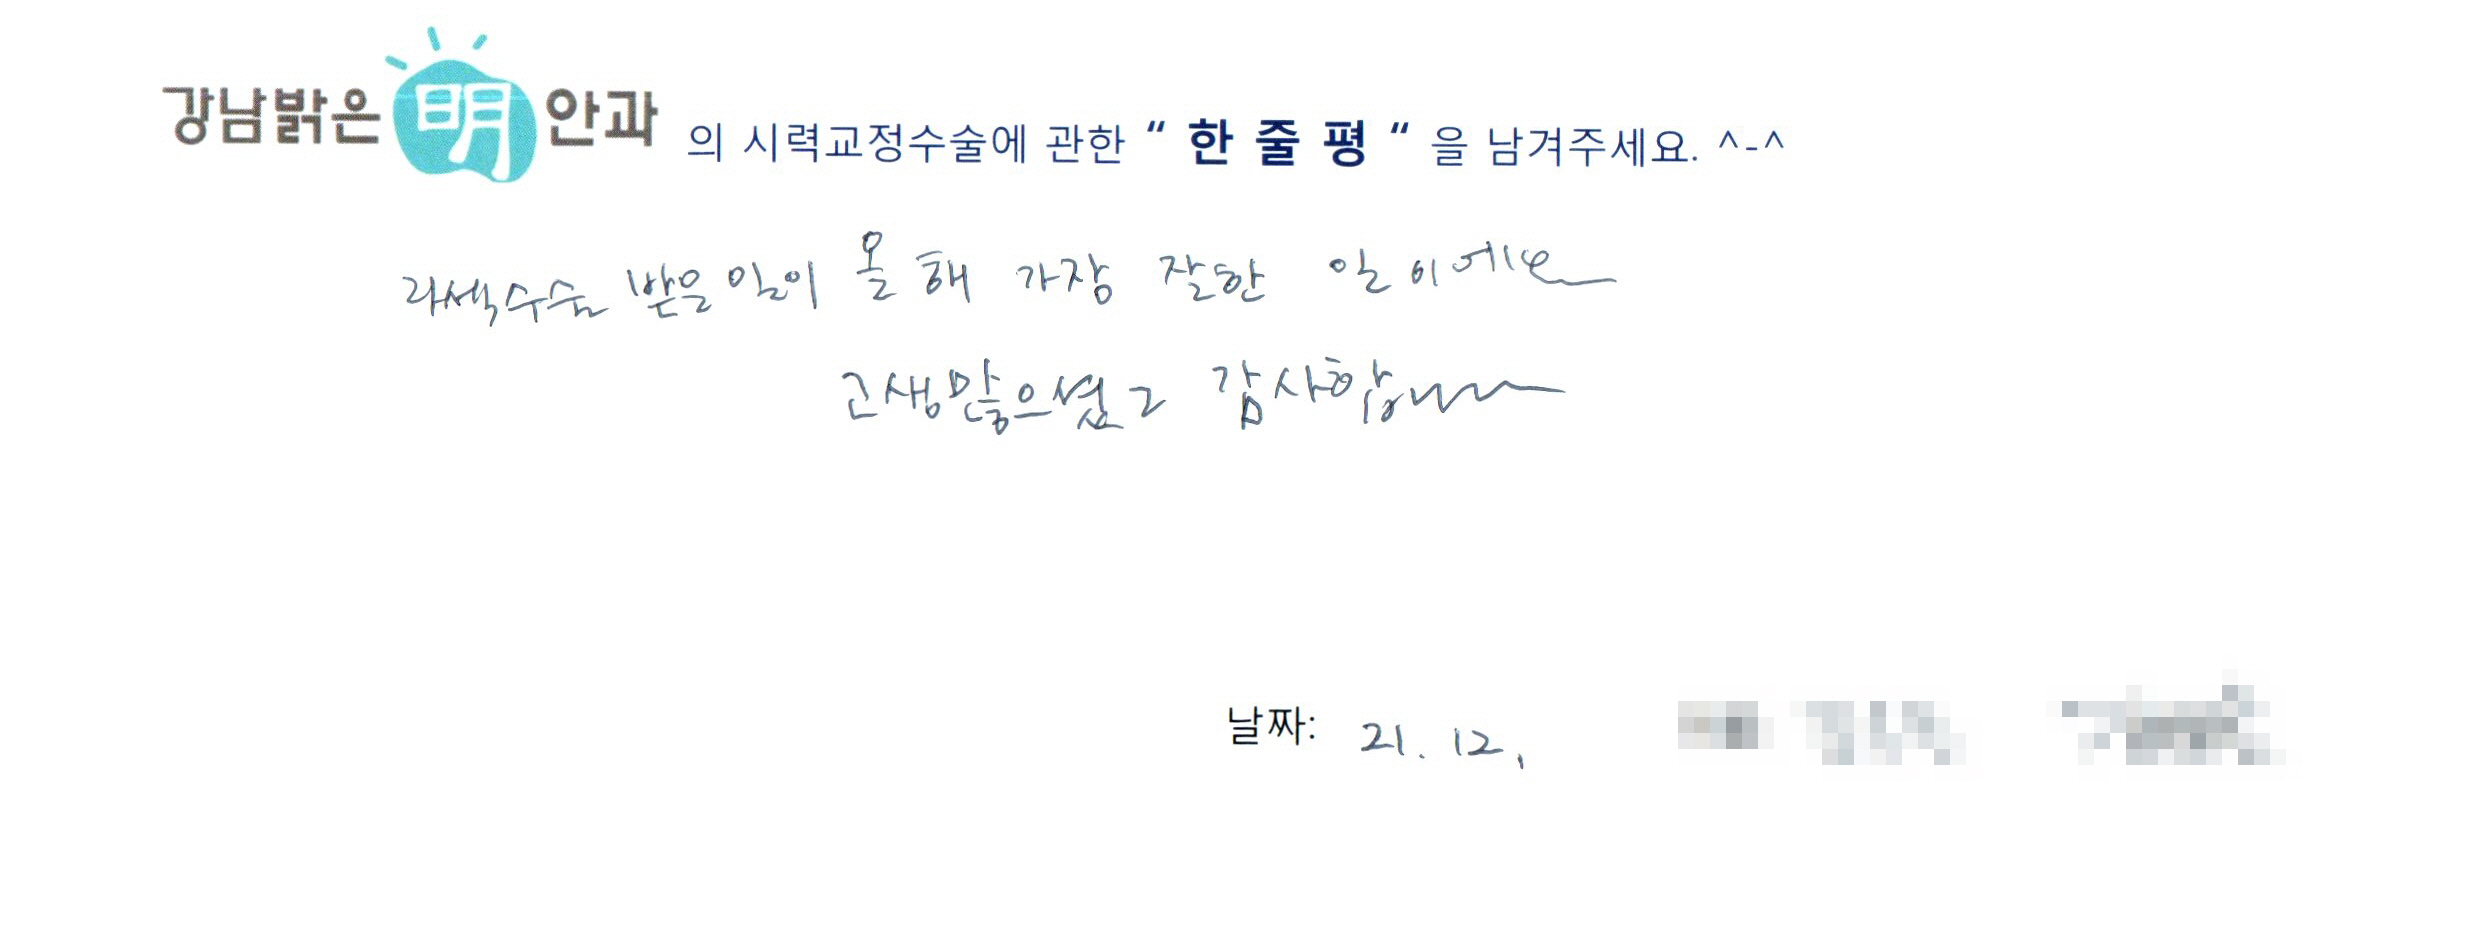 강남밝은 明 안과 의 시력교정수술에 관한 “ 한 줄 평 “ 을 남겨주세요. ^-^
라섹수술 받은일이 올해 가장 잘한 일이에요
고생많으셨고 감사합
날짜: 21. 12.